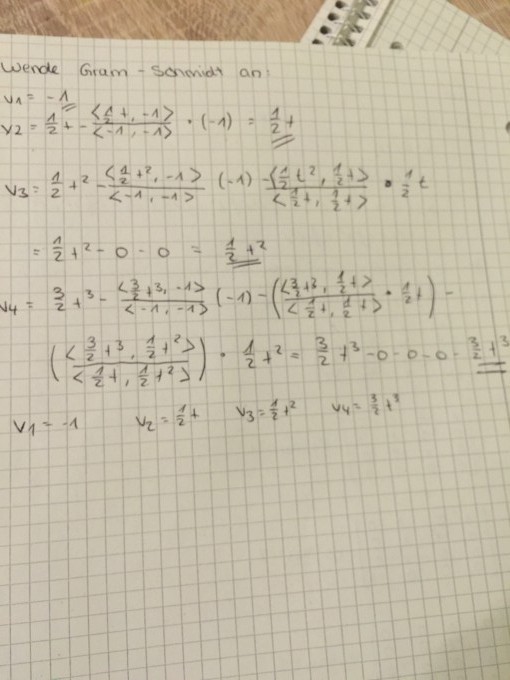 Wende Gram-Schmidt an:
v1 = -1
v2 = 1/2 t - <1/2 t, -1> / <-1, -1> • (-1) = 1/2 t
v3 = 1/2 t² - <1/2 t², -1> / <-1, -1> (-1) - <1/2 t², 1/2 t> / <1/2 t, 1/2 t> • 1/2 t
= 1/2 t² - 0 - 0 = 1/2 t²
v4 = 3/2 t³ - <3/2 t³, -1> / <-1, -1> (-1) - (<3/2 t³, 1/2 t> / <1/2 t, 1/2 t> • 1/2 t) -
(<3/2 t³, 1/2 t²> / <1/2 t, 1/2 t²>) • 1/2 t² = 3/2 t³ - 0 - 0 - 0 - 3/2 t³
v1 = -1 v2 = 1/2 t v3 = 1/2 t² v4 = 3/2 t³